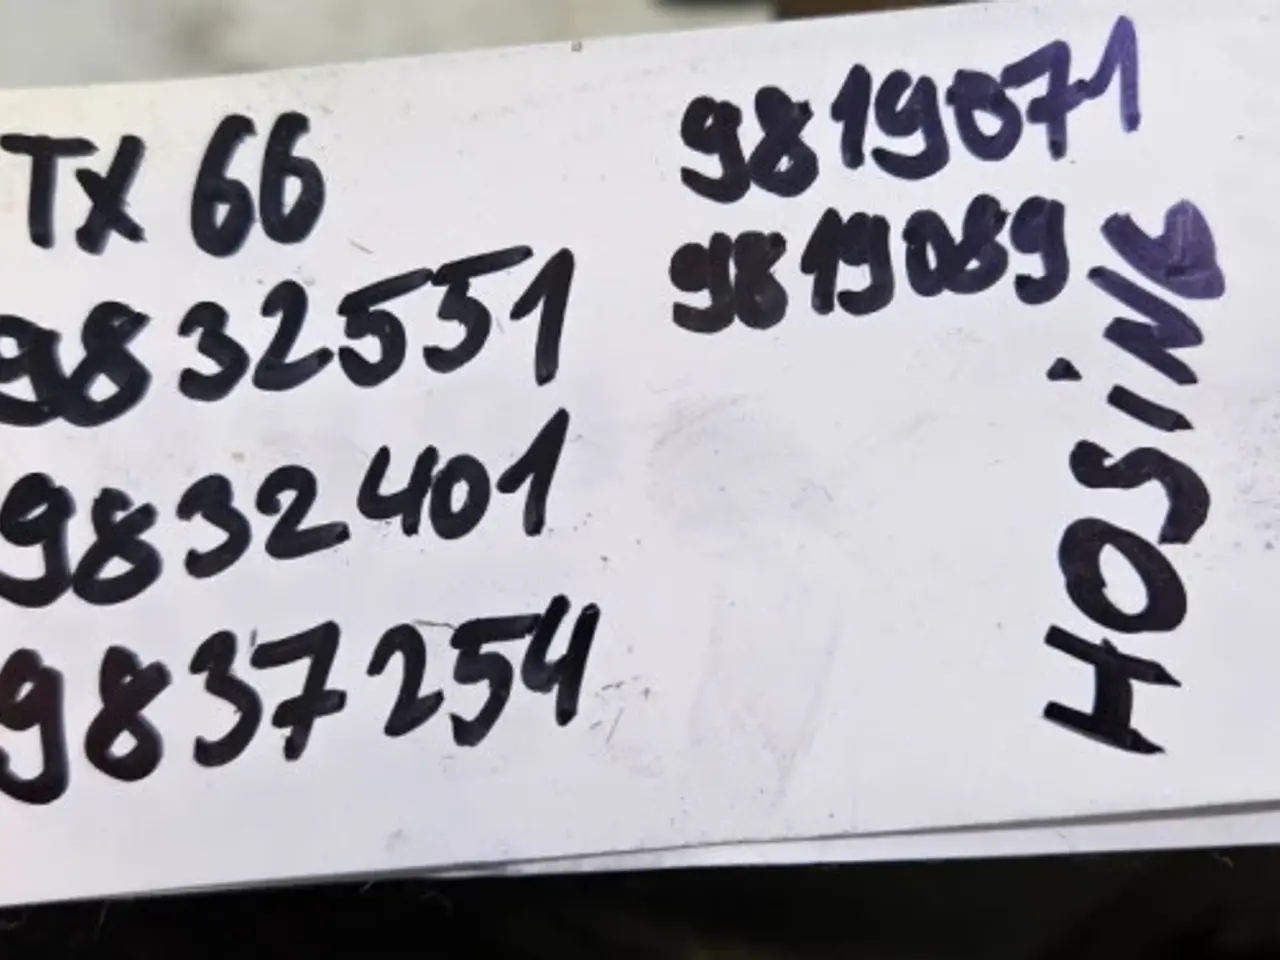 TX 66
9832551
9832401
9837254
9819071
9819089
HOSiNG